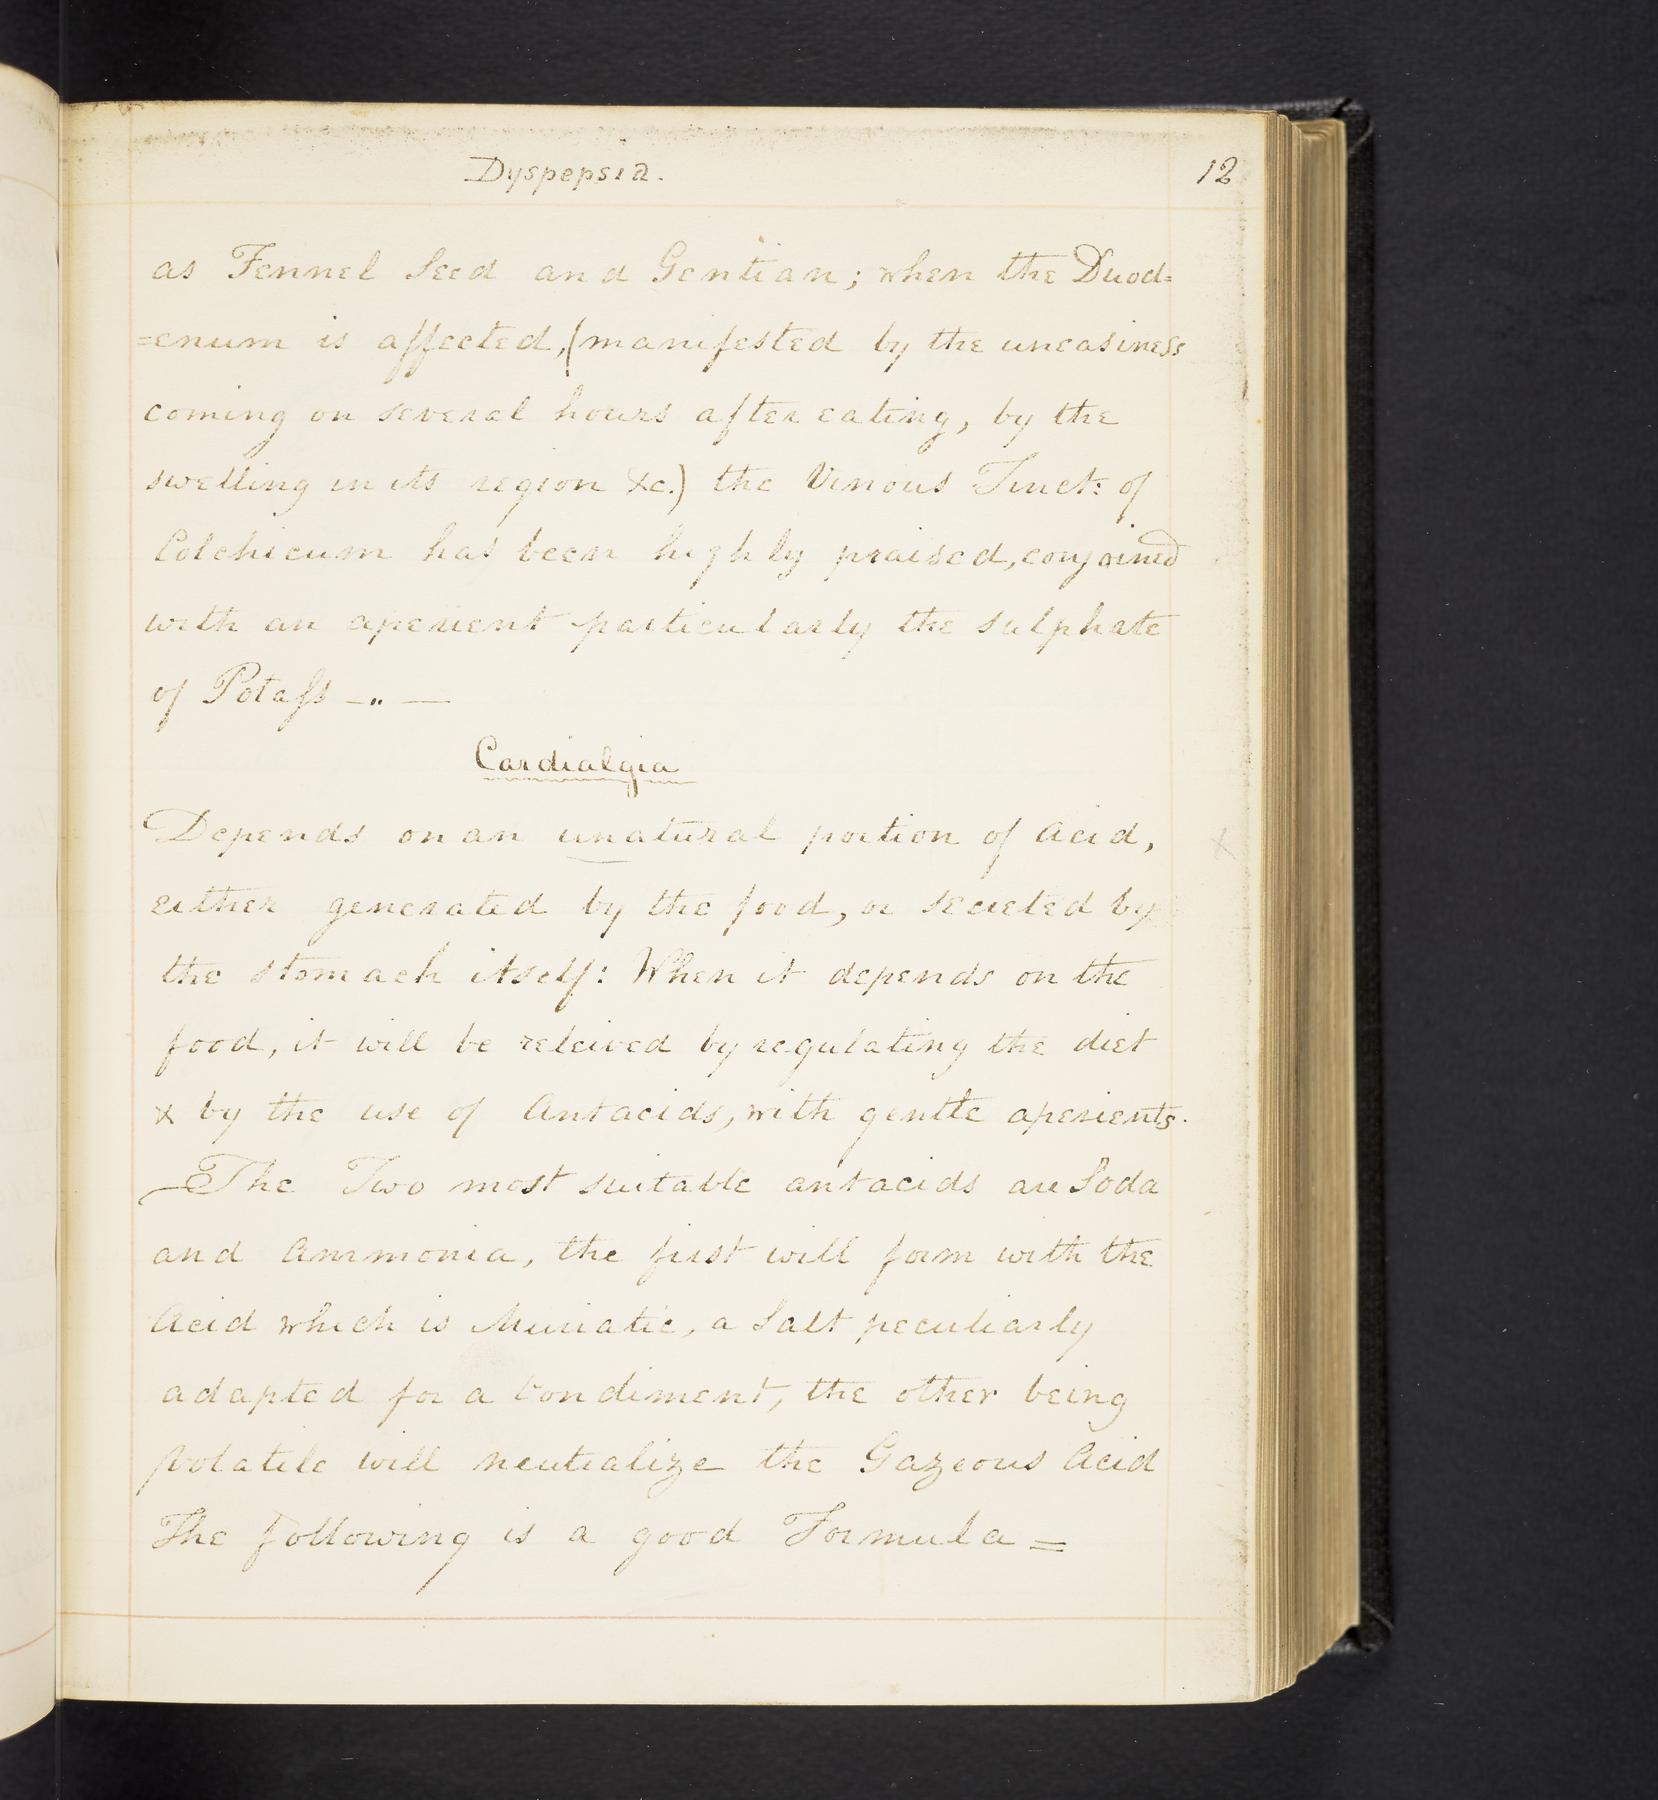 Dyspepsia.
12
as Fennel Seed and Gentian; when the Duod=
=enum is affected, (manifested by the uneasiness
coming on several hours after eating, by the
swelling in its region &c.) the Vinous Tinct: of
Colchicum has been highly praised, conjoined
with an aperient particularly the sulphate
of Potass —„—
Cardialgia
Depends on an unatural portion of Acid,
either generated by the food, or secreted by
the stomach itself: When it depends on the
food, it will be releived by regulating the diet
& by the use of Antacids, with gentle aperients.
—The Two most suitable antacids are Soda
and Ammonia, the first will form with the
Acid which is Muriatic, a Salt peculiarly
adapted for a Condiment, the other being
volatile will neutralize the Gazeous Acid
The following is a good Formula =